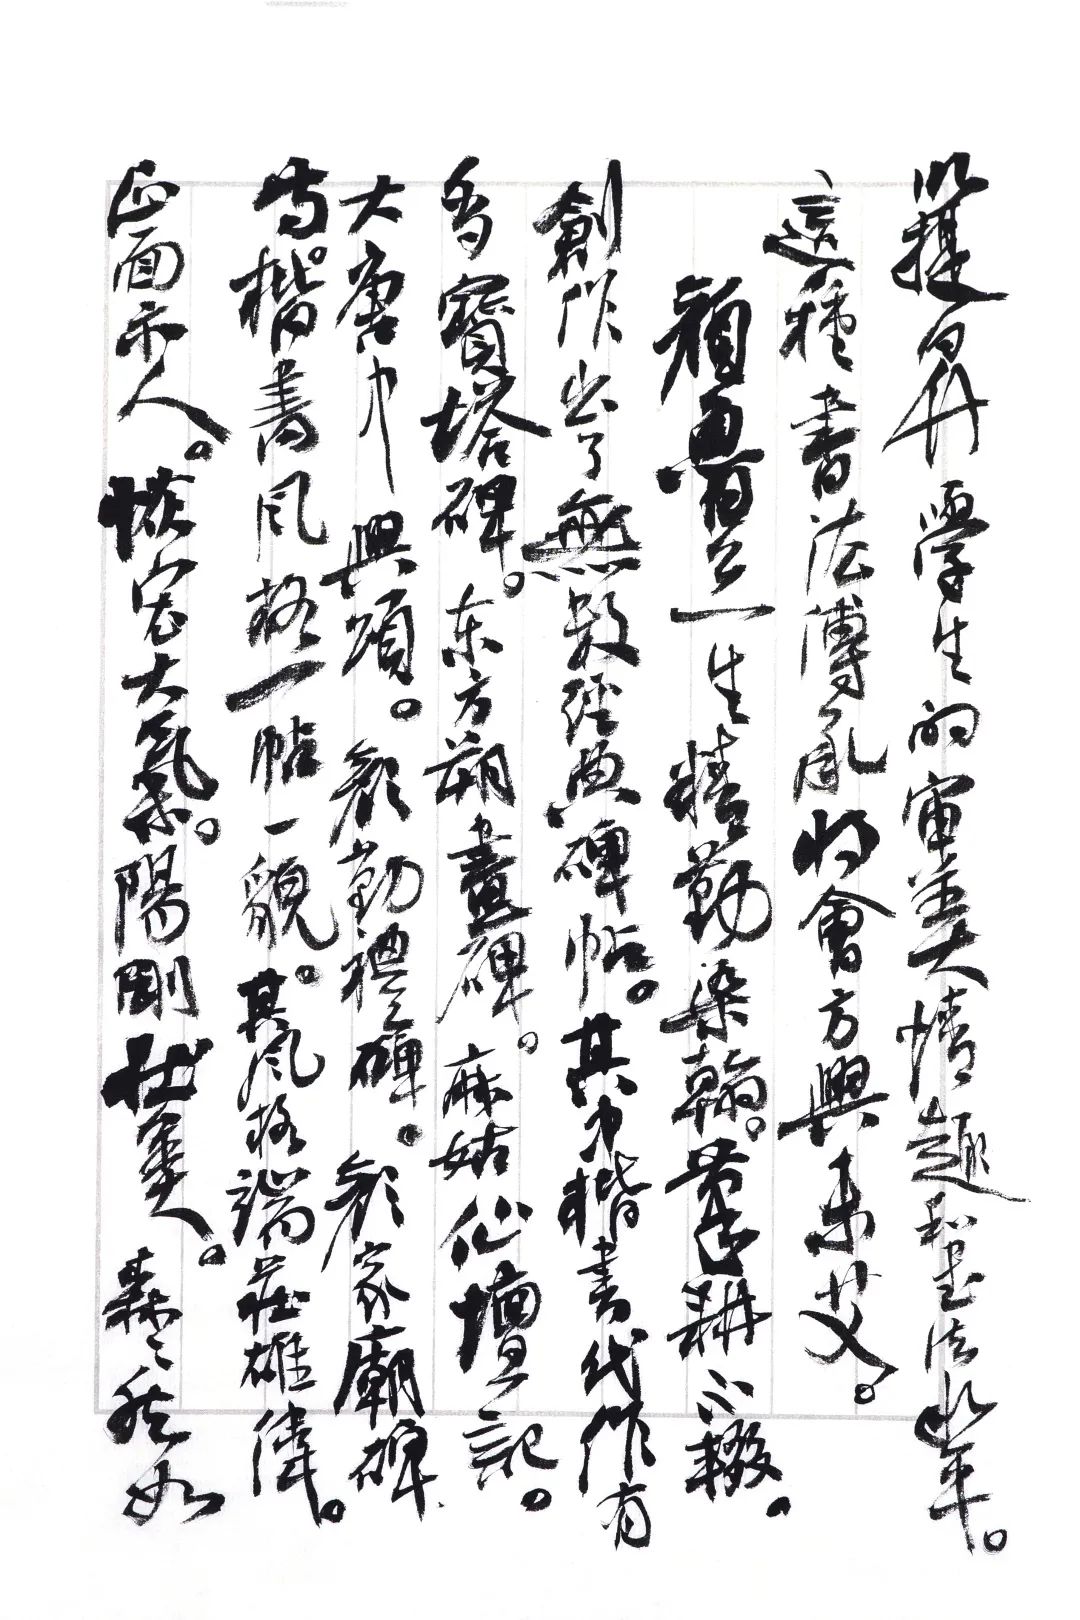 以提升学生的审美情趣和书法水平。
這種書法傳承將會方興未艾。
顏魯公一生精勤染翰。筆耕不輟。
創作出了無數經典碑帖。其中楷書代作有
多寶塔碑。东方朔畫碑。麻姑仙壇記。
大唐中興頌。顏勤禮碑。顏家廟碑
等。楷書風格一帖一貌。其風格端莊雄偉。
正面示人。恢宏大氣。陽剛壯美。森森然如